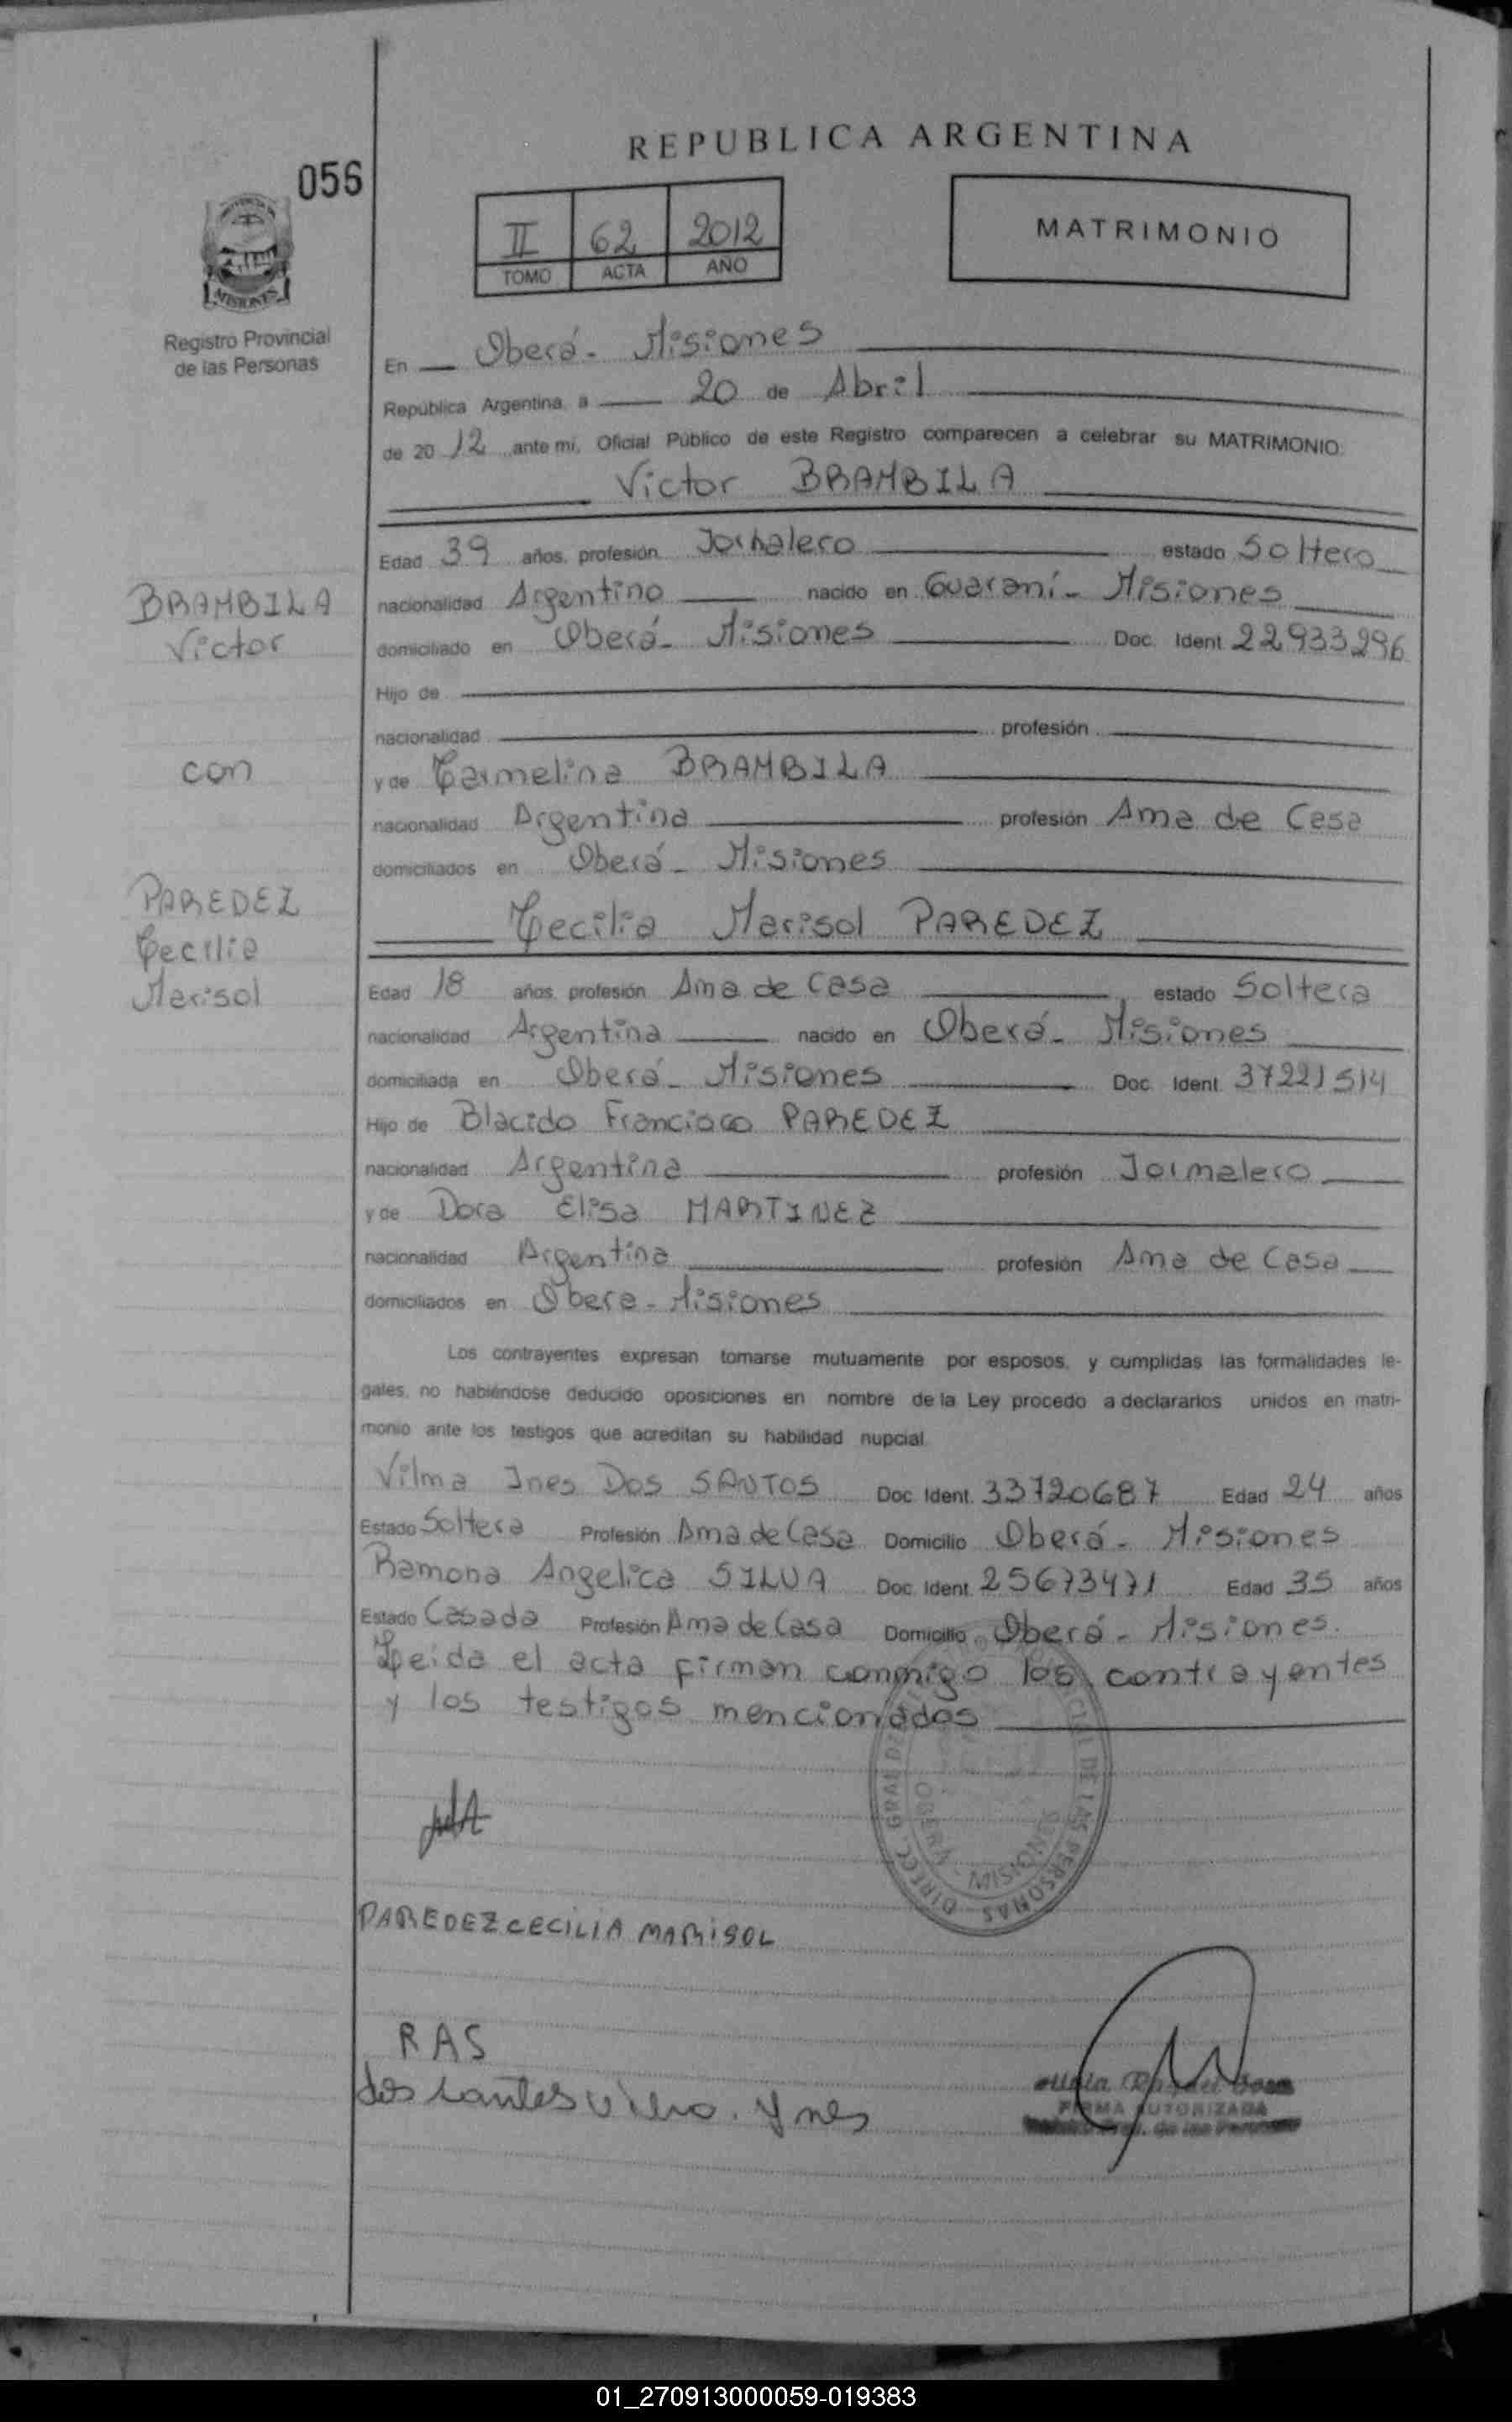 REPUBLICA ARGENTINA
056
II 62 2012
TOMO ACTA AÑO
MATRIMONIO
MISIONES
Registro Provincial
de las Personas
En Oberá - Misiones
República Argentina, a 20 de Abril
de 20 12 ante mi, Oficial Público de este Registro comparecen a celebrar su MATRIMONIO:
Victor BRAMBILA
Edad 39 años, profesión Jornalero estado Soltero
nacionalidad Argentino nacido en Guaraní - Misiones
domiciliado en Oberá - Misiones Doc. Ident. 22933296
Hijo de
nacionalidad profesión
y de Carmelina BRAMBILA
nacionalidad Argentina profesión Ama de Casa
domiciliados en Oberá - Misiones
BRAMBILA
Victor
con
PAREDEZ
Cecilia
Marisol
Cecilia Marisol PAREDEZ
Edad 18 años, profesión Ama de Casa estado Soltera
nacionalidad Argentina nacido en Oberá - Misiones
domiciliada en Oberá - Misiones Doc. Ident. 37221514
Hijo de Blacido Francisco PAREDEZ
nacionalidad Argentina profesión Jornalero
y de Dora Elisa MARTINEZ
nacionalidad Argentina profesión Ama de Casa
domiciliados en Obera - Misiones
Los contrayentes expresan tomarse mutuamente por esposos, y cumplidas las formalidades le-
gales, no habiéndose deducido oposiciones en nombre de la Ley procedo a declararlos unidos en matri-
monio ante los testigos que acreditan su habilidad nupcial
Vilma Ines Dos SANTOS Doc. Ident. 33720687 Edad 24 años
Estado Soltera Profesión Ama de Casa Domicilio Oberá - Misiones
Ramona Angelica SILVA Doc. Ident. 25673471 Edad 35 años
Estado Casada Profesión Ama de Casa Domicilio Oberá - Misiones.
Leida el acta firman conmigo los contrayentes
y los testigos mencionados
OBERA - MISIONES
PAREDEZ CECILIA MARISOL
RAS
dos santos vilma. Ynes
FIRMA AUTORIZADA
01_270913000059-019383